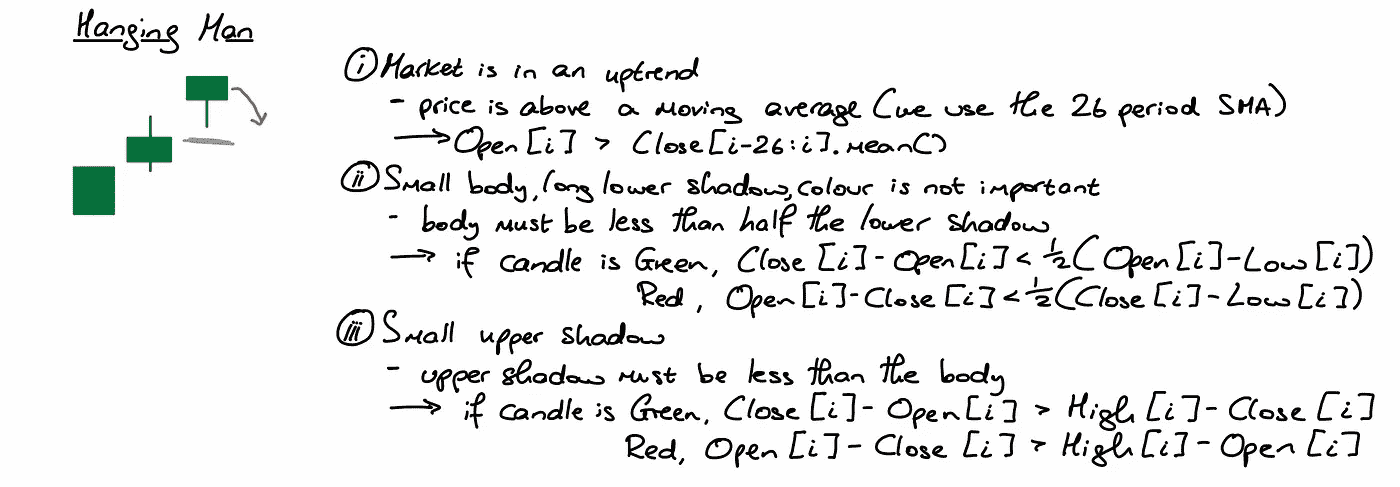 Hanging Man
(i) Market is in an uptrend
- price is above a moving average (we use the 26 period SMA)
→ Open[i] > Close[i-26:i].mean()
(ii) Small body, long lower shadow, colour is not important
- body must be less than half the lower shadow
→ if candle is Green, Close[i]-Open[i] < ½(Open[i]-Low[i])
Red, Open[i]-Close[i] < ½(Close[i]-Low[i])
(iii) Small upper shadow
- upper shadow must be less than the body
→ if candle is Green, Close[i]-Open[i] > High[i]-Close[i]
Red, Open[i]-Close[i] > High[i]-Open[i]